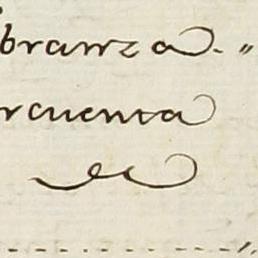 branza. "
rcuenta